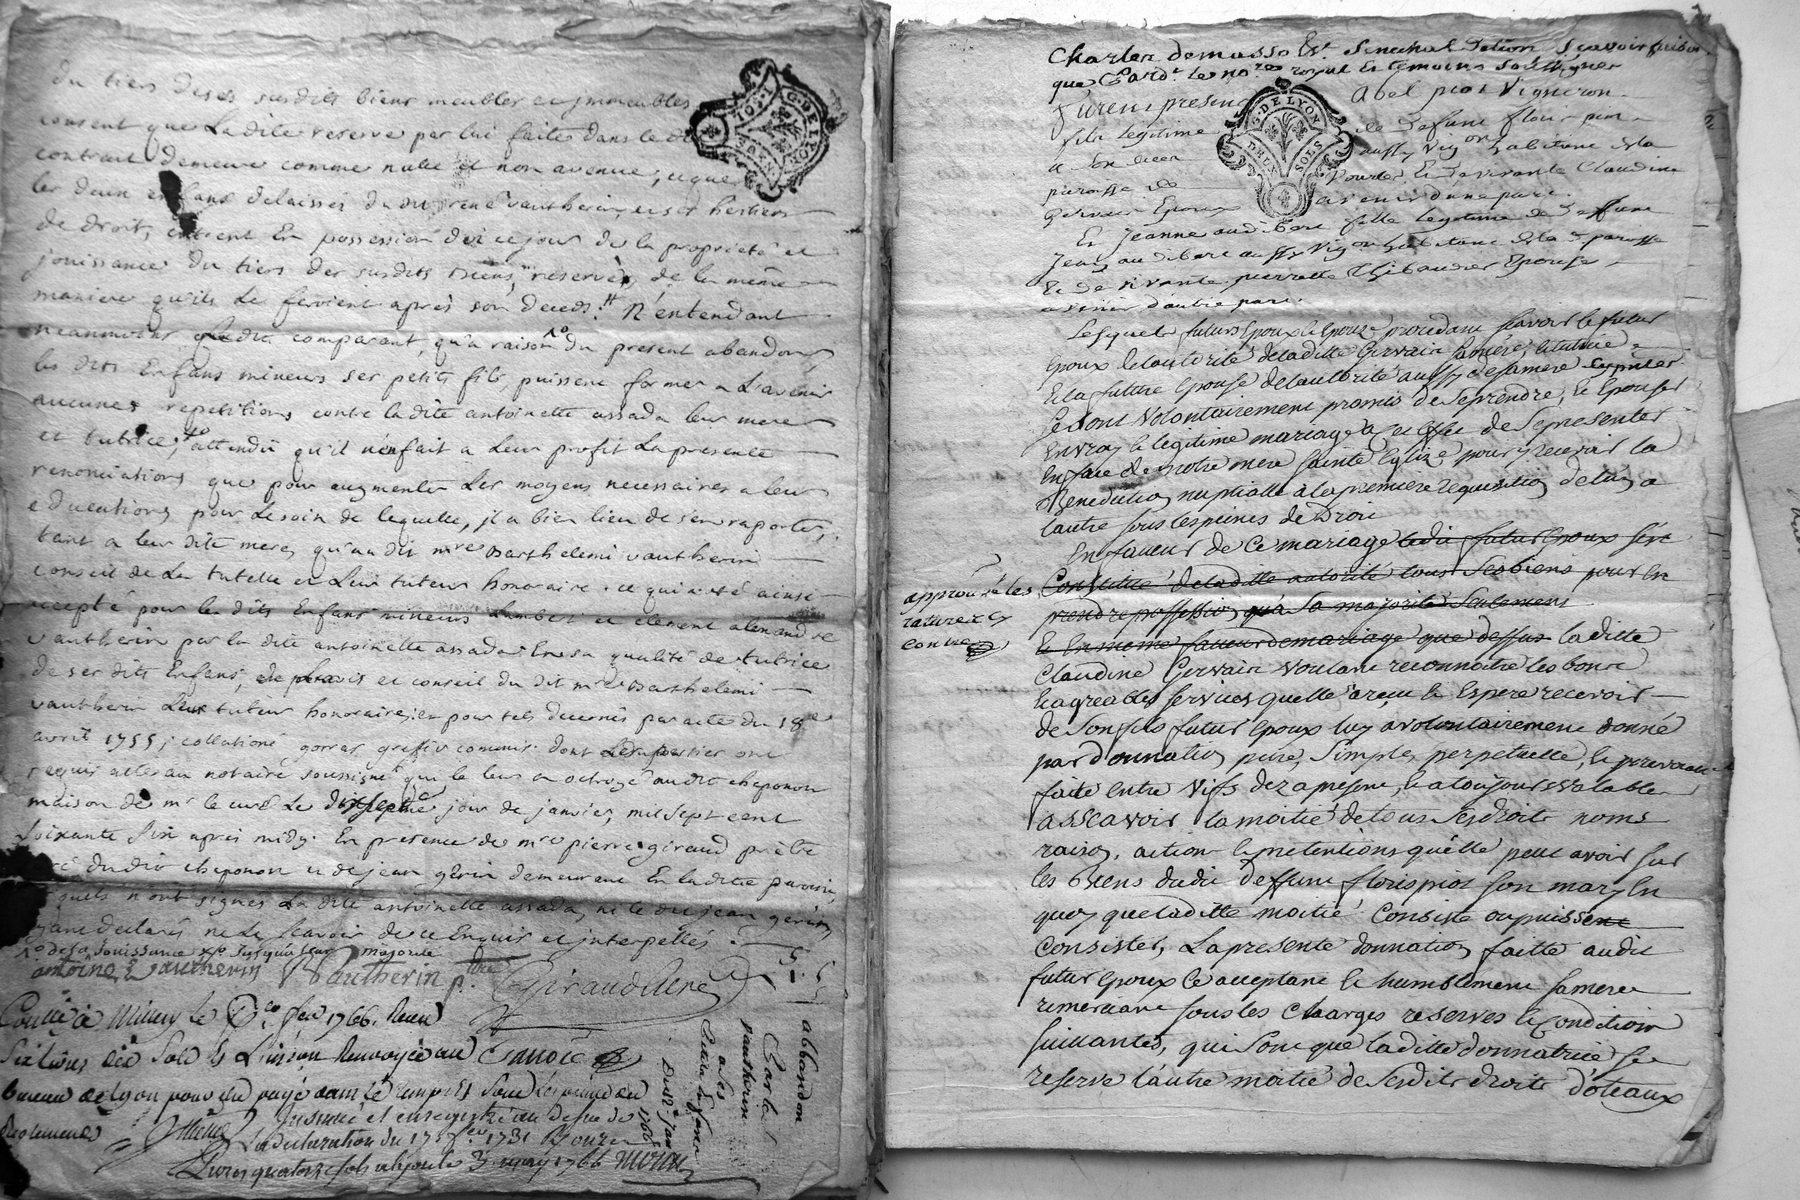 du tiers de ses susdits biens meubles et immeubles
consent que la dite reserve par lui faite dans le dt
contrat demeure comme nulle et non avenue, et que
les deux enfans delaissés du dit rené vautherin, et ses héritiers
de droit, entrent en possession dez ce jour de la propriété et
jouissance du tiers des susdits biens, reservés, de la même
maniere qu'ils le feroient après son deceds. N'entendant
neanmoins le dit comparant, qu'a raison du present abandon,
les dits enfans mineurs ses petits fils, puissent former a l'avenir
aucunes repetitions contre la dite antoinette assada leur mere
et tutrice, attendu qu'il n'en fait a leur profit la presente
renonciation que pour augmenter les moyens necessaires a leur
education, pour le soin de laquelle, il a bien lieu de s'en raporter,
tant a leur dite mere, qu'au dit mre Barthelemi vautherin
conseil de la tutelle et leur tuteur honoraire. ce qui a été ainsi
accepté pour les dits enfans mineurs Lambert et clement alexandre
vautherin par la dite antoinette assada en sa qualité de tutrice
de ses dits enfans, de l'avis et conseil du dit mre Barthelemi
vautherin leur tuteur honoraire; et pour tels decernés par acte du 18e
avril 1755; collationé gorras greffier commis. dont les parties ont
requis acte au notaire soussigné qui le leur a octroyé au dit cheponon
maison de mr le curé le dixseptme jour de janvier, mil sept cent
soixante six après midy. En presence de mre pierre giraud prêtre
curé du dit cheponon et de jean gerin demeurant en la dite paroisse,
lesquels n'ont signés la dite antoinette assada, ni le dit jean gerin
ayant declarés ne le scavoir de ce enquis et interpellés.
de la jouissance jusqu'a leur majorité
antoine Vautherin Vautherin ptre Giraud curé
Conllé a Millery le fev 1766. Receu
Six livres dix sols
bureau de Lyon pour etre payé dans le temps et sous les peines du
Reglement Insinué et enregistré au desir de
la declaration du 17 fer 1731 Reçu
Livres quatorze sols a Lyon le 3 may 1766
abbandon
Par le S
vautherin
a ses
Petits Enfans
Du 17e janv
1766
G. DE LYON
G. DE LYON
DEUX SOLS
Charles de masso Sr Senechal de lion Scavoir faisons
que Pard le nore royal et temoins soussignés
Furent present Abel piot Vigneron
fils legitime de deffunt floris piot
a son decea aussy vigon habitant de la
paroisse de Vourles et de vivante Claudine
Gervais Epoux a venir d'une part.
Et Jeanne audibert fille legitime de deffunt
Jean audibert aussy vigon habitant de la d paroisse
Et de vivante pierrette Thibaudier Epouse
a venir d'autre part.
Lesquels futurs Epoux et Epouze procedant scavoir le futur
Epoux de l'autorité de la ditte Gervais sa mere, et tutrice
Et la future Epouse de l'autorité aussy de sa mere
se sont volontairement promis de se prendre, et Epouser
En vray et legitime mariage a cet effet de se presenter
En face de notre mere Sainte Eglise pour y recevoir la
Benediction nuptialle a la premiere requisition de l'un a
l'autre sous les peines de Droit
En faveur de ce mariage le dit futur Epoux s'est
Constitué de la ditte autorité tous Ses biens pour en
prendre possession qu'a Sa majorité Seulement
et En meme faveur de mariage que dessus la ditte
approuvé les
rature cy
contre
Claudine Gervais voulant reconnoitre les bons
et agreables Services qu'elle a reçu et Espere recevoir
de Son fils futur Epoux luy a volontairement donné
par donnation pure, Simple, perpetuelle, et irrevocable
faite entre vifs dez a present, et a toujours valable
asscavoir la moitié de tous Ses droits noms
raisons, action et pretentions qu'elle peut avoir sur
les Biens du dit deffunt floris piot son mary En
quoy que la ditte moitié Consiste ou puisse
Consister, La presente donnation faitte au dit
futur Epoux ce acceptant et humblement sa mere
remerciant sous les charges reserves et Condition
suivantes, qui Sont que la ditte donnatrice se
reserve l'autre moitié de Ses dits droits d'oteaux